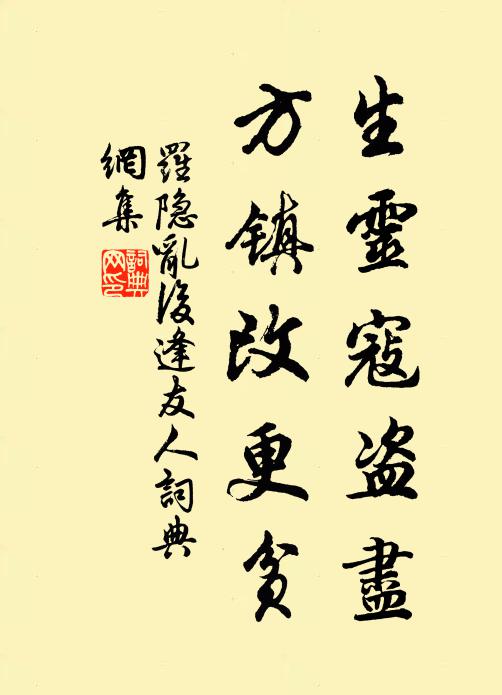 生靈寇盜盡
方镇改更貧
羅隐亂後逢友人詞典
網集
詞典
网印